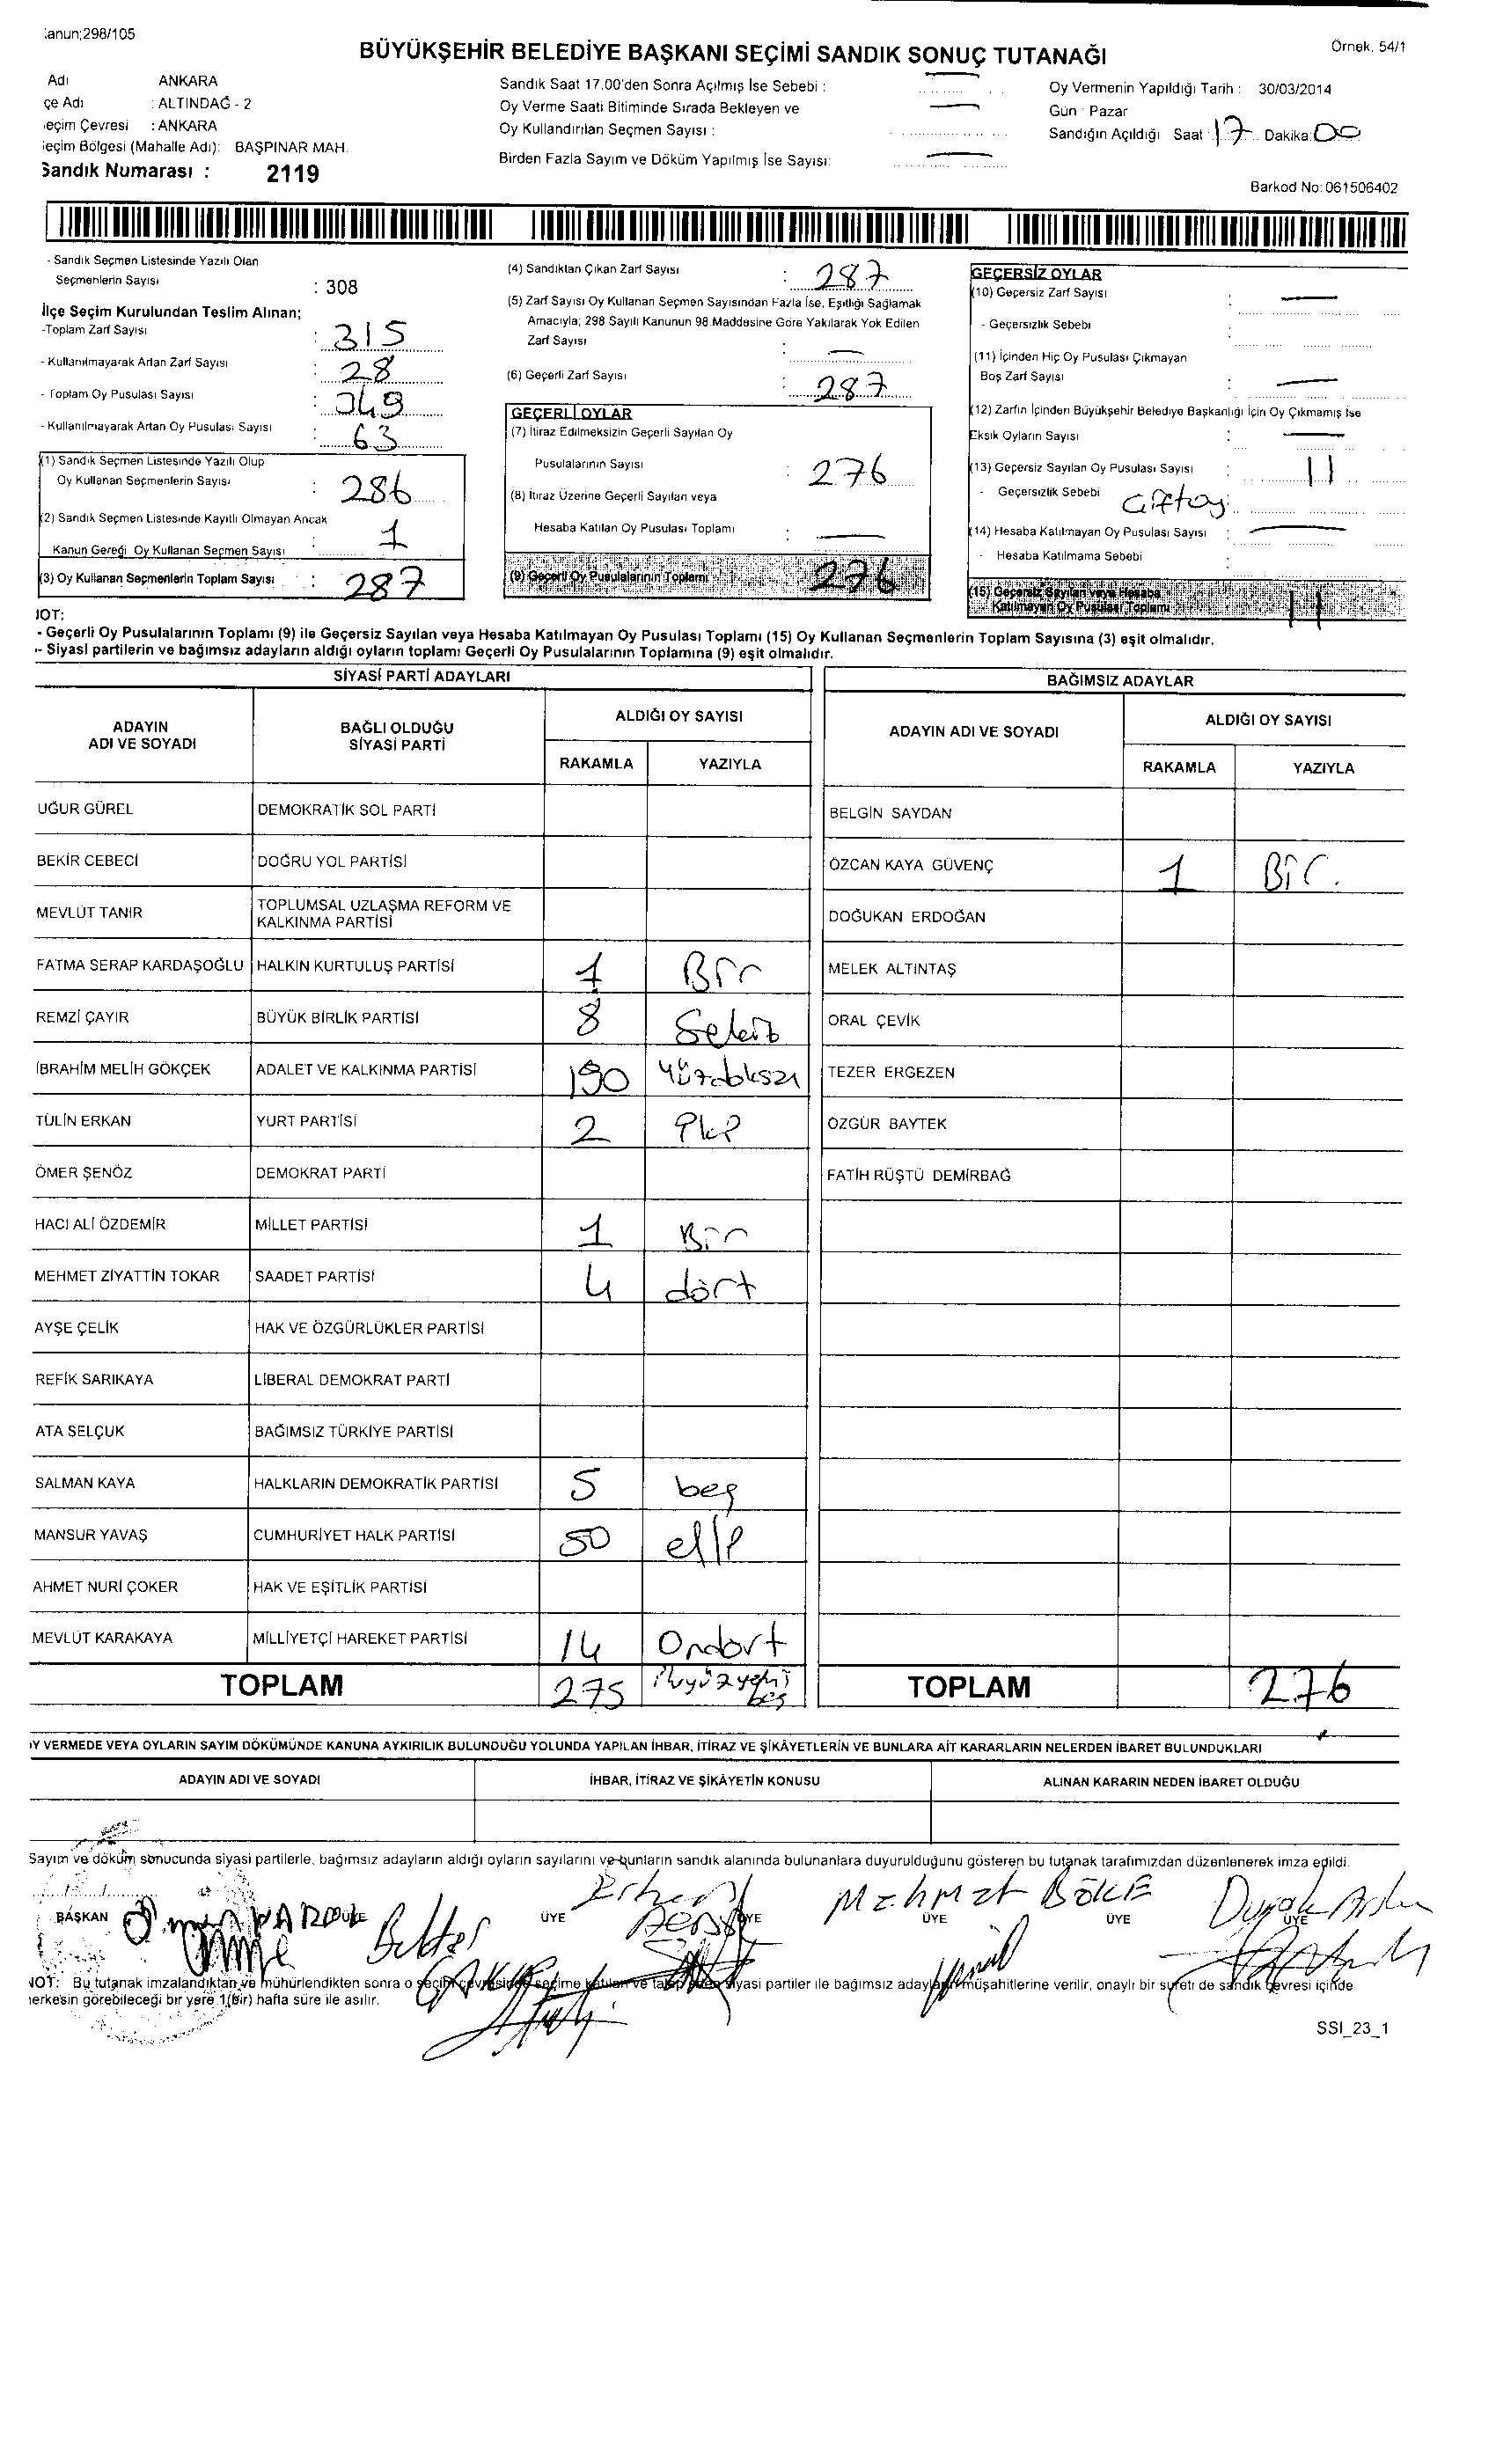 :anun;298/105
BÜYÜKŞEHİR BELEDİYE BAŞKANI SEÇİMİ SANDIK SONUÇ TUTANAĞI
Örnek. 54/1
Adı ANKARA
çe Adı : ALTINDAĞ - 2
eçim Çevresi : ANKARA
eçim Bölgesi (Mahalle Adı): BAŞPINAR MAH.
Sandık Numarası : 2119
Sandık Saat 17.00'den Sonra Açılmış İse Sebebi :
Oy Verme Saati Bitiminde Sırada Bekleyen ve
Oy Kullandırılan Seçmen Sayısı :
Birden Fazla Sayım ve Döküm Yapılmış İse Sayısı:
Oy Vermenin Yapıldığı Tarih : 30/03/2014
Gün : Pazar
Sandığın Açıldığı Saat 17 Dakika:00
Barkod No:061506402
- Sandık Seçmen Listesinde Yazılı Olan
Seçmenlerin Sayısı : 308
İlçe Seçim Kurulundan Teslim Alınan;
-Toplam Zarf Sayısı : 315
- Kullanılmayarak Artan Zarf Sayısı : 28
- Toplam Oy Pusulası Sayısı : 349
- Kullanılmayarak Artan Oy Pusulası Sayısı : 63
(1) Sandık Seçmen Listesinde Yazılı Olup
Oy Kullanan Seçmenlerin Sayısı : 286
(2) Sandık Seçmen Listesinde Kayıtlı Olmayan Ancak
Kanun Gereği Oy Kullanan Seçmen Sayısı : 1
(3) Oy Kullanan Seçmenlerin Toplam Sayısı : 287
(4) Sandıktan Çıkan Zarf Sayısı : 287
(5) Zarf Sayısı Oy Kullanan Seçmen Sayısından Fazla İse, Eşitliği Sağlamak
Amacıyla; 298 Sayılı Kanunun 98.Maddesine Göre Yakılarak Yok Edilen
Zarf Sayısı : —
(6) Geçerli Zarf Sayısı : 287
GEÇERLİ OYLAR
(7) İtiraz Edilmeksizin Geçerli Sayılan Oy
Pusulalarının Sayısı : 276
(8) İtiraz Üzerine Geçerli Sayılan veya
Hesaba Katılan Oy Pusulası Toplamı : —
(9) Geçerli Oy Pusulalarının Toplamı : 276
GEÇERSİZ OYLAR
(10) Geçersiz Zarf Sayısı : —
- Geçersizlik Sebebi :
(11) İçinden Hiç Oy Pusulası Çıkmayan
Boş Zarf Sayısı : —
(12) Zarfın İçinden Büyükşehir Belediye Başkanlığı İçin Oy Çıkmamış İse
Eksik Oyların Sayısı : —
(13) Geçersiz Sayılan Oy Pusulası Sayısı : 11
- Geçersizlik Sebebi Çiftoy
(14) Hesaba Katılmayan Oy Pusulası Sayısı : —
- Hesaba Katılmama Sebebi :
(15) Geçersiz Sayılan veya Hesaba
Katılmayan Oy Pusulası Toplamı : 11
NOT:
- Geçerli Oy Pusulalarının Toplamı (9) ile Geçersiz Sayılan veya Hesaba Katılmayan Oy Pusulası Toplamı (15) Oy Kullanan Seçmenlerin Toplam Sayısına (3) eşit olmalıdır.
- Siyasi partilerin ve bağımsız adayların aldığı oyların toplamı Geçerli Oy Pusulalarının Toplamına (9) eşit olmalıdır.
SİYASİ PARTİ ADAYLARI
ADAYIN ADI VE SOYADI BAĞLI OLDUĞU SİYASİ PARTİ ALDIĞI OY SAYISI
RAKAMLA YAZIYLA
UĞUR GÜREL DEMOKRATİK SOL PARTİ
BEKİR CEBECİ DOĞRU YOL PARTİSİ
MEVLÜT TANIR TOPLUMSAL UZLAŞMA REFORM VE KALKINMA PARTİSİ
FATMA SERAP KARDAŞOĞLU HALKIN KURTULUŞ PARTİSİ 1 Bir
REMZİ ÇAYIR BÜYÜK BİRLİK PARTİSİ 8 Sekiz
İBRAHİM MELİH GÖKÇEK ADALET VE KALKINMA PARTİSİ 190 Yüzdoksan
TÜLİN ERKAN YURT PARTİSİ 2 İki
ÖMER ŞENÖZ DEMOKRAT PARTİ
HACI ALİ ÖZDEMİR MİLLET PARTİSİ 1 Bir
MEHMET ZİYATTİN TOKAR SAADET PARTİSİ 4 dört
AYŞE ÇELİK HAK VE ÖZGÜRLÜKLER PARTİSİ
REFİK SARIKAYA LİBERAL DEMOKRAT PARTİ
ATA SELÇUK BAĞIMSIZ TÜRKİYE PARTİSİ
SALMAN KAYA HALKLARIN DEMOKRATİK PARTİSİ 5 beş
MANSUR YAVAŞ CUMHURİYET HALK PARTİSİ 50 elli
AHMET NURİ ÇOKER HAK VE EŞİTLİK PARTİSİ
MEVLÜT KARAKAYA MİLLİYETÇİ HAREKET PARTİSİ 14 Ondört
TOPLAM 275 ikiyüzyetmiş beş
BAĞIMSIZ ADAYLAR
ADAYIN ADI VE SOYADI ALDIĞI OY SAYISI
RAKAMLA YAZIYLA
BELGİN SAYDAN
ÖZCAN KAYA GÜVENÇ 1 Bir.
DOĞUKAN ERDOĞAN
MELEK ALTINTAŞ
ORAL ÇEVİK
TEZER ERGEZEN
ÖZGÜR BAYTEK
FATİH RÜŞTÜ DEMİRBAĞ
TOPLAM 276
OY VERMEDE VEYA OYLARIN SAYIM DÖKÜMÜNDE KANUNA AYKIRILIK BULUNDUĞU YOLUNDA YAPILAN İHBAR, İTİRAZ VE ŞİKÂYETLERİN VE BUNLARA AİT KARARLARIN NELERDEN İBARET BULUNDUKLARI
ADAYIN ADI VE SOYADI İHBAR, İTİRAZ VE ŞİKÂYETİN KONUSU ALINAN KARARIN NEDEN İBARET OLDUĞU
Sayım ve döküm sonucunda siyasi partilerle, bağımsız adayların aldığı oyların sayılarını ve bunların sandık alanında bulunanlara duyurulduğunu gösteren bu tutanak tarafımızdan düzenlenerek imza edildi.
BAŞKAN ÜYE ÜYE ÜYE ÜYE ÜYE ÜYE
Mehmet BÖKE
NOT: Bu tutanak imzalandıktan ve mühürlendikten sonra o seçim çevresinde seçime katılan ve talep eden siyasi partiler ile bağımsız adayların müşahitlerine verilir, onaylı bir sureti de sandık çevresi içinde
herkesin görebileceği bir yere 1(Bir) hafta süre ile asılır.
SSI_23_1